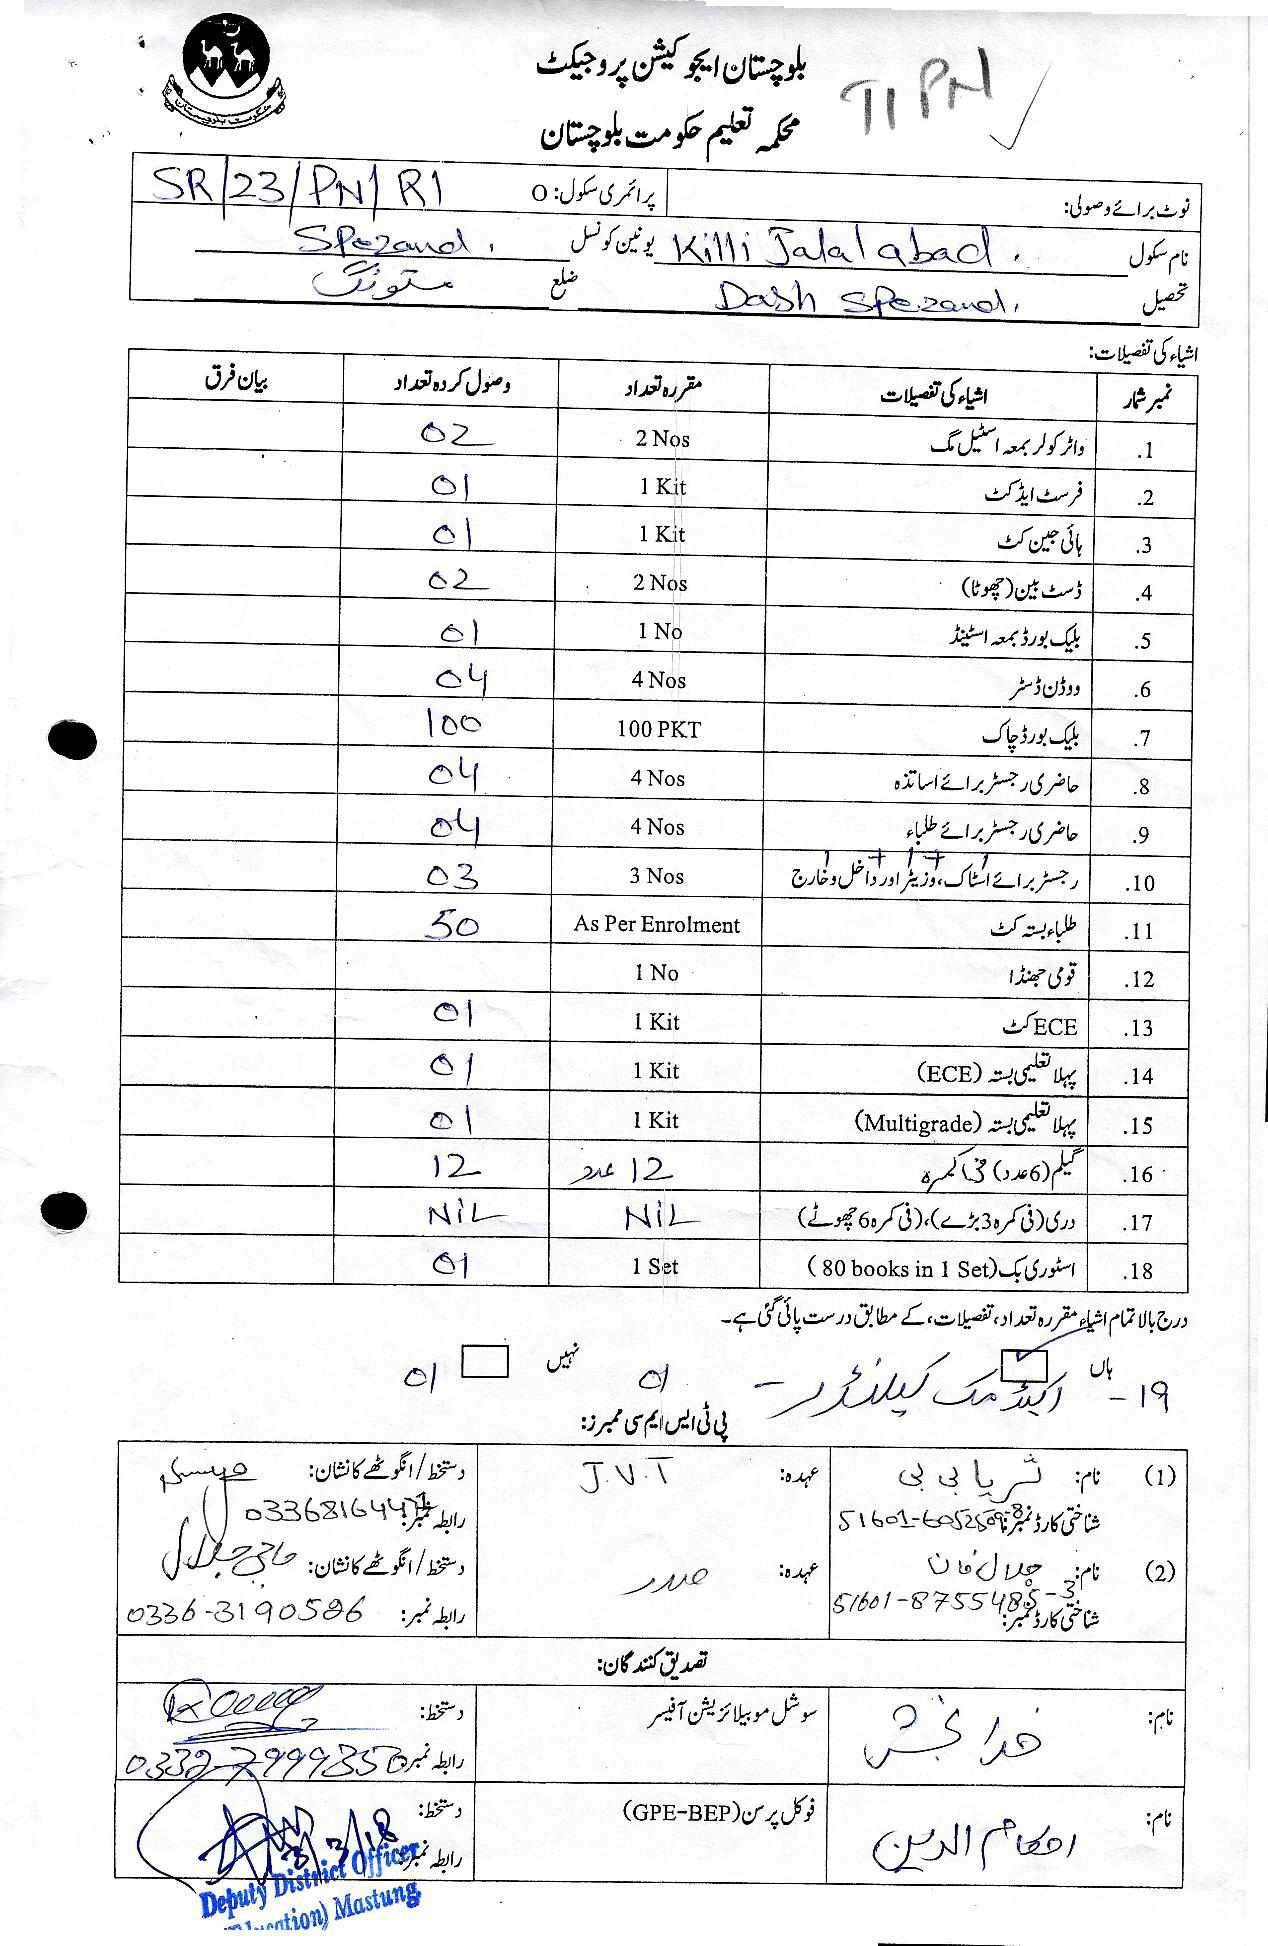 حکومت بلوچستان
بلوچستان ایجوکیشن پروجیکٹ
محکمہ تعلیم حکومت بلوچستان
T1 PN
نوٹ برائے وصولی: پرائمری سکول: O SR/23/PN/R1
نام سکول Killi Jalalabad. یونین کونسل Spezand.
تحصیل Dash Spezand. ضلع مستونگ
اشیاء کی تفصیلات:
نمبر شمار اشیاء کی تفصیلات مقررہ تعداد وصول کردہ تعداد بیان فرق
1. واٹر کولر بمعہ اسٹیل مگ 2 Nos 02
2. فرسٹ ایڈ کٹ 1 Kit 01
3. ہائی جین کٹ 1 Kit 01
4. ڈسٹ بین (چھوٹا) 2 Nos 02
5. بلیک بورڈ بمعہ اسٹینڈ 1 No 01
6. ووڈن ڈسٹر 4 Nos 04
7. بلیک بورڈ چاک 100 PKT 100
8. حاضری رجسٹر برائے اساتذہ 4 Nos 04
9. حاضری رجسٹر برائے طلباء 4 Nos 04
10. رجسٹر برائے اسٹاک، وزیٹر اور داخل و خارج 3 Nos 03
11. طلباء بستہ کٹ As Per Enrolment 50
12. قومی جھنڈا 1 No
13. ECE کٹ 1 Kit 01
14. پہلا تعلیمی بستہ (ECE) 1 Kit 01
15. پہلا تعلیمی بستہ (Multigrade) 1 Kit 01
16. گیلم (6 عدد) فی کمرہ 12 عدد 12
17. دری (فی کمرہ 3 بڑے)، (فی کمرہ 6 چھوٹے) NIL NIL
18. اسٹوری بک (80 books in 1 Set) 1 Set 01
درج بالا تمام اشیاء مقررہ تعداد، تفصیلات، کے مطابق درست پائی گئی ہے۔
ہاں نہیں
۱۹- اکیڈمک کیلنڈر - 01 01
پی ٹی ایس ایم سی ممبرز:
(1) نام: ثریا بی بی عہدہ: J.V.T دستخط/انگوٹھے کا نشان:
شناختی کارڈ نمبر: رابطہ نمبر:
(2) نام: جلال خان عہدہ: صدر دستخط/انگوٹھے کا نشان: حاجی جلال
شناختی کارڈ نمبر: 51601-8755485-3 رابطہ نمبر: 0336-3190586
تصدیق کنندگان:
نام: خدا بخش سوشل موبیلائزیشن آفیسر دستخط:
رابطہ نمبر:
نام: احکام الدین فوکل پرسن (GPE-BEP) دستخط:
رابطہ نمبر:
Deputy District Officer
(Education) Mastung